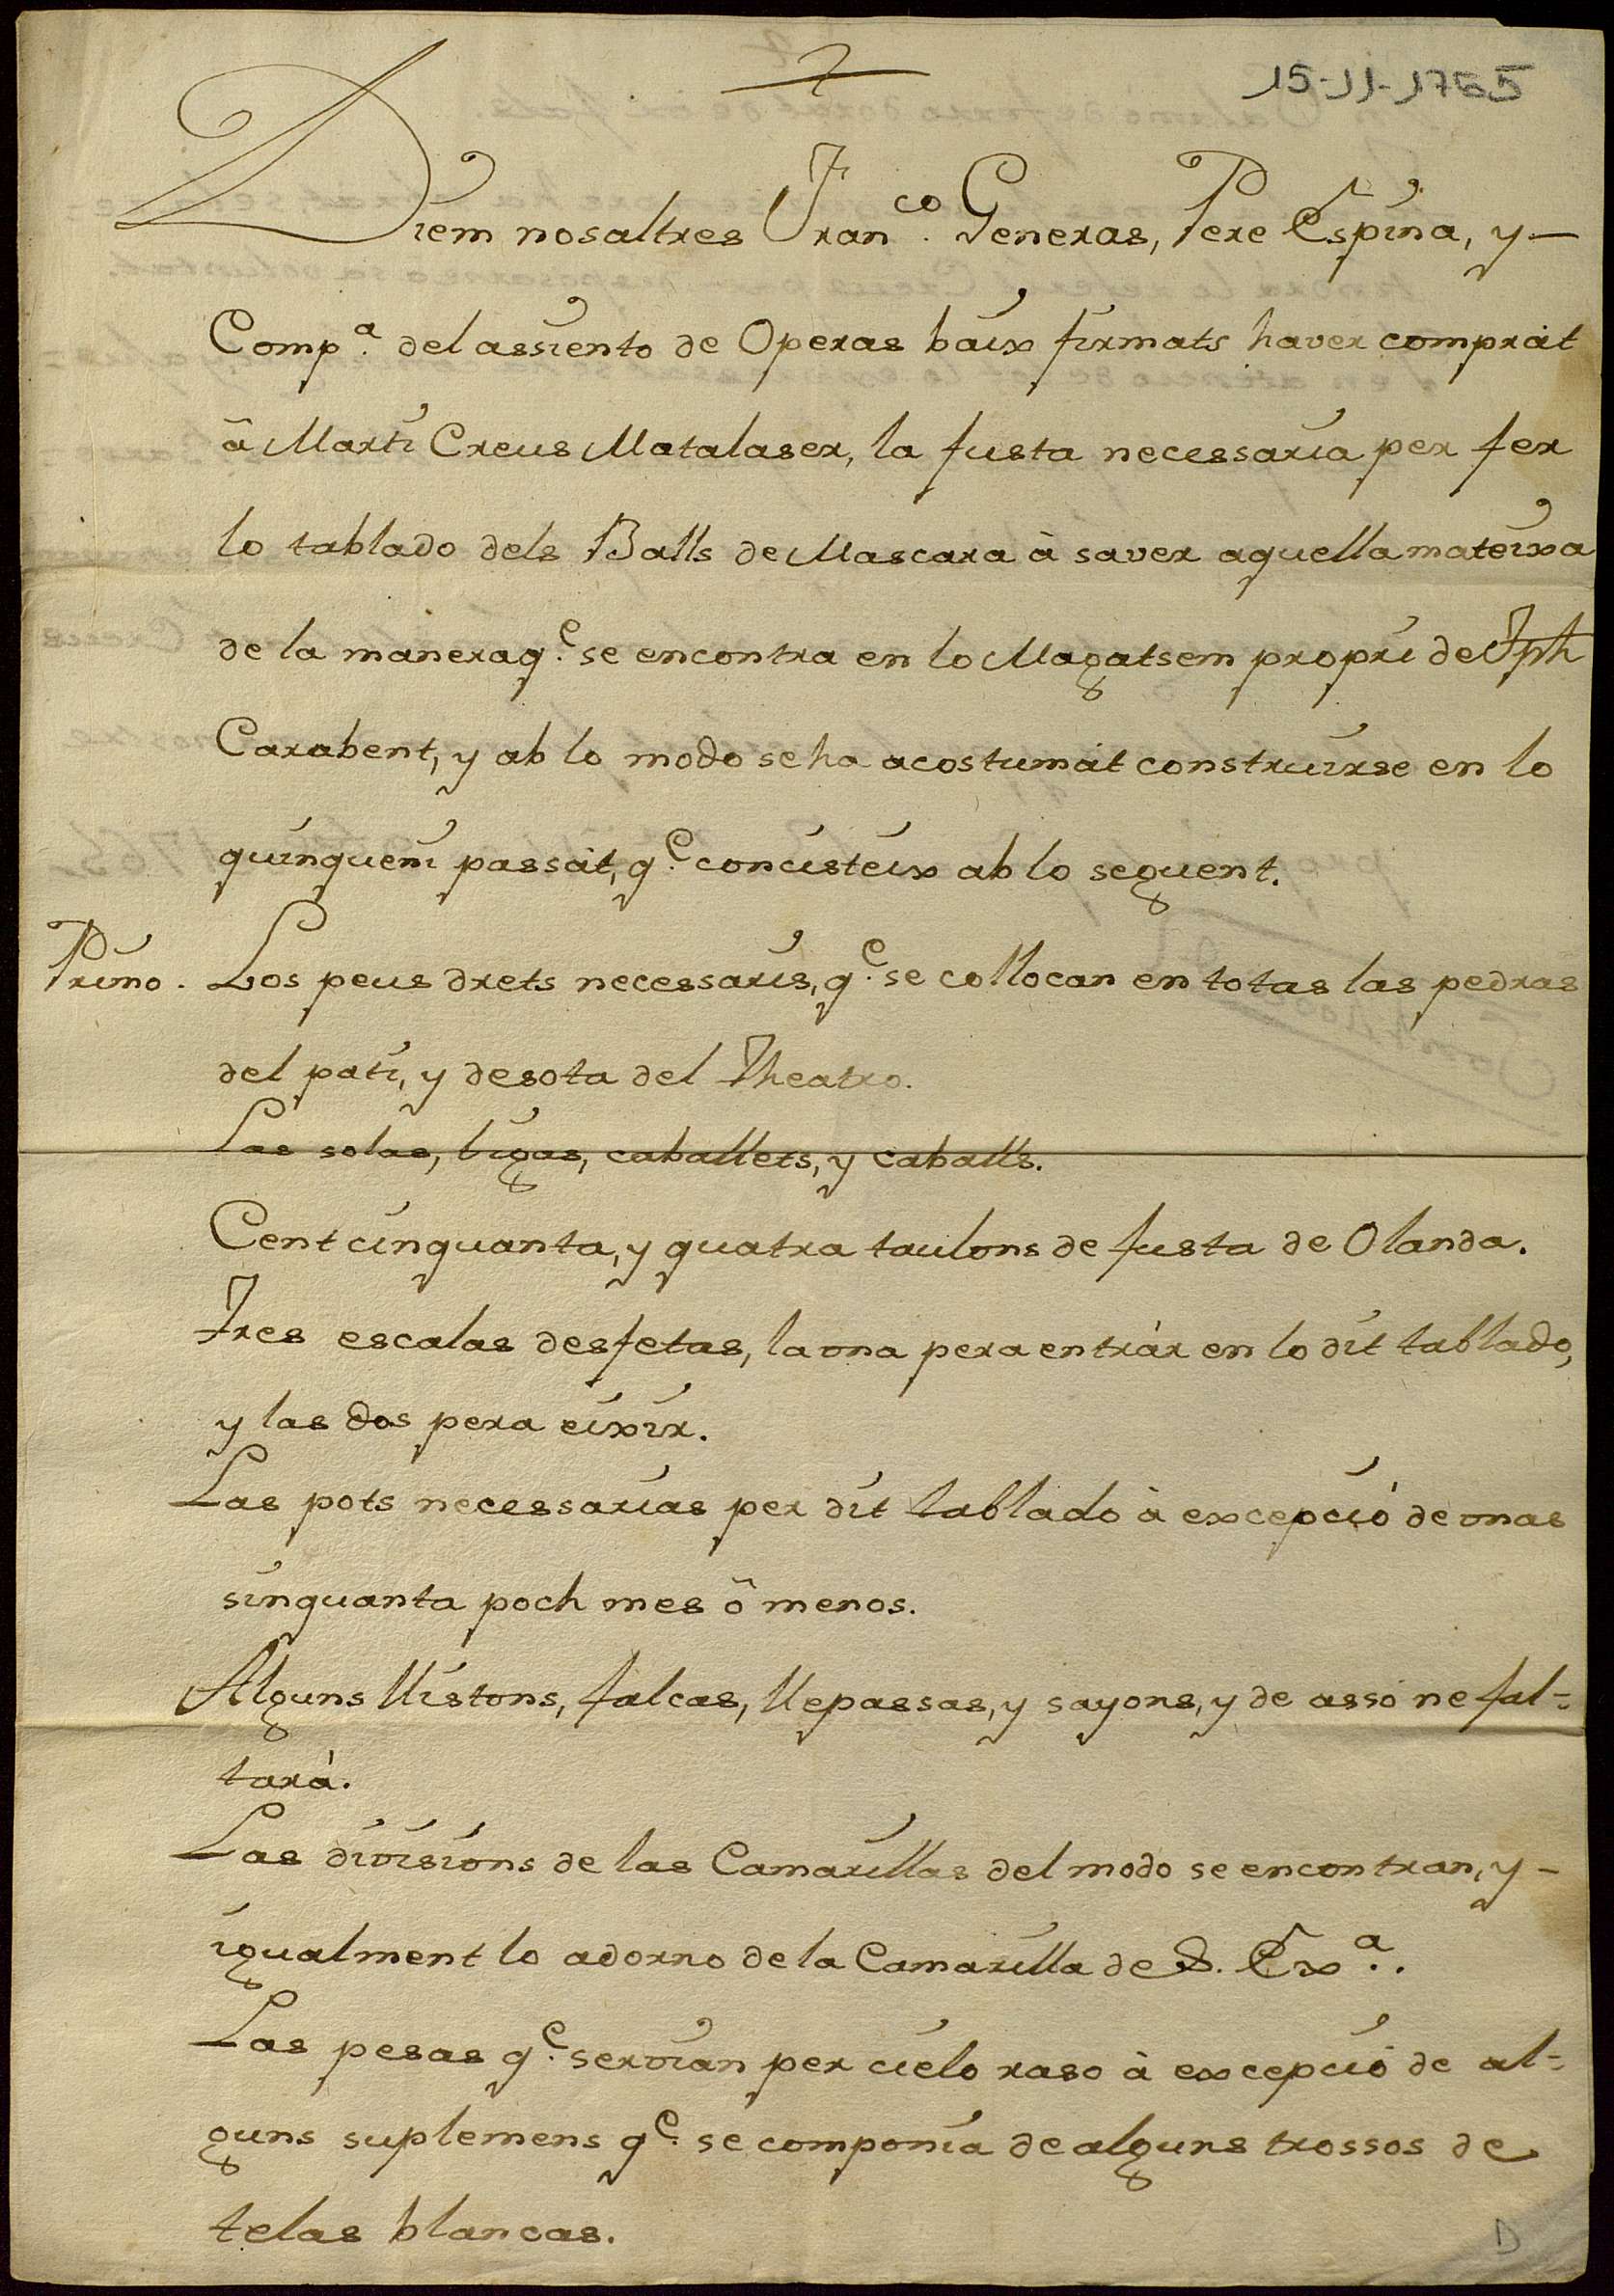 15-11-1765
Diem nosaltres Fran.co Generas, Pere Espina, y-
Comp.a del assiento de Operas baix firmats haver comprát
â Martí Creus Matalaser, la fusta necessaria per fer
lo tablado dels Balls de Mascara à saver aquella mateixa
de la manera q.e se encontra en lo Magatsem propri de Jph
Carabent, y ab lo modo se ha acostumát construirse en lo
quinqueni passát, q.e concisteix ab lo seguent.
Primo. Los peus drets necessaris, q.e se collocan en totas las pedras
del pati, y desota del Theatro.
Las solas, bigas, caballets, y caballs.
Cent cinquanta, y quatra taulons de fusta de Olanda.
Tres escalas desfetas, la una pera entrár en lo dit tablado,
y las dos pera eixir.
Las pots necessarias per dit tablado à excepció de unas
sinquanta poch mes ô menos.
Alguns llistons, falcas, llepassas, y sayons, y de assó ne fal=
tará.
Las divisions de las Camarillas del modo se encontran, y-
igualment lo adorno de la Camarilla de S. Ex.a.
Las pesas q.e servian per cielo raso à excepció de al=
guns suplemens q.e se componia de alguns trossos de
telas blancas.
D